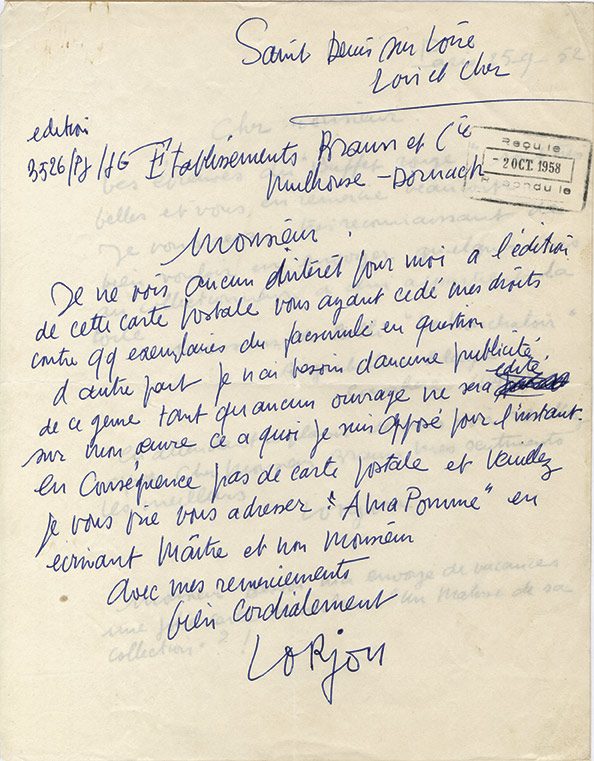 Saint Denis sur Loire
Loir et Cher
edition
3526/PJ/JG Établissements Braun et Cie
Mulhouse - Dornach
Reçu le
- 2 OCT. 1958
Répondu le
Monsieur
Je ne vois aucun d'intérêt pour moi a l'édition
de cette carte postale vous ayant cedé mes droits
contre 99 exemplaires du facsimilé en question
d'autre part je n'ai besoin d'aucune publicité
de ce genre tant qu'aucun ouvrage ne sera edité
sur mon œuvre ce a quoi je suis opposé pour l'instant.
en conséquence pas de carte postale et veuillez
je vous prie vous adresser "A ma Pomme" en
ecrivant Maître et non Monsieur
avec mes remerciements
bien cordialement
LORJOU